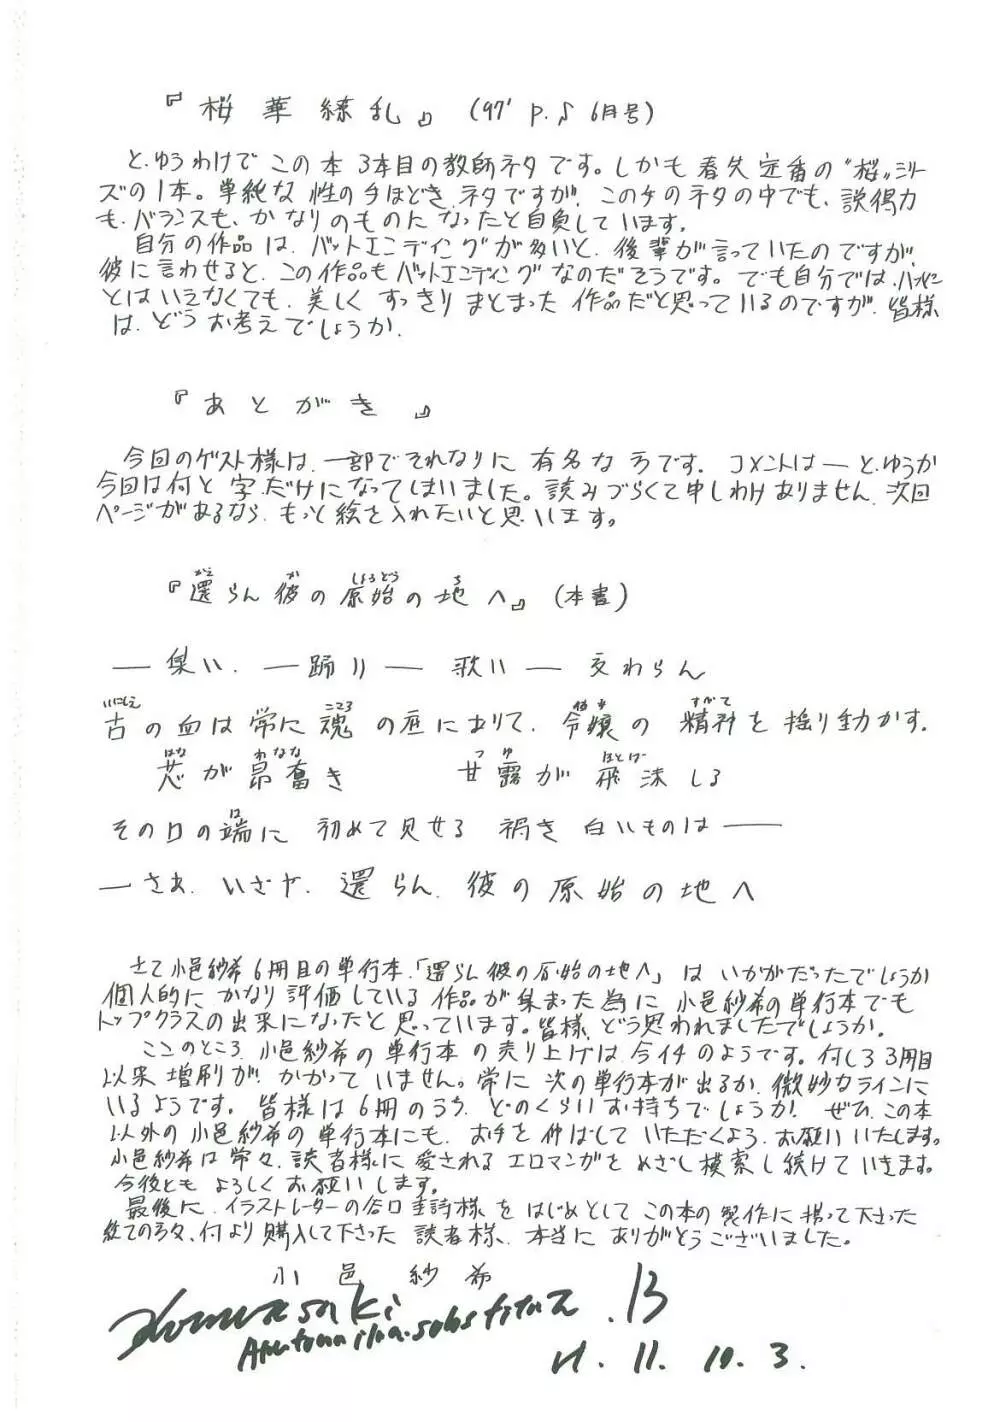 『桜華繚乱』(97' P.♪ 6月号)
と、ゆうわけでこの本3本目の教師ネタです。しかも春矢定番の〝桜〟シリー
ズの1本。単純な性の手ほどきネタですが、この手のネタの中でも、説得力
も、バランスも、かなりのものになったと自負しています。
自分の作品は、バットエンディングが多いと、後輩が言っていたのですが、
彼に言わせると、この作品もバットエンディングなのだそうです。でも自分では、ハッピーエン
とはいえなくても、美しくすっきりまとまった作品だと思っているのですが、皆様
は、どうお考えでしょうか。
『あとがき』
今回のゲスト様は、一部でそれなりに有名な方です。コメントは— と、ゆうか
今回は何と字だけになってしまいました。読みづらくて申しわけありません、次回
ページがあるなら、もっと絵を入れたいと思います。
『還らん彼の原始の地へ』(本書)
— 集い、— 踊り — 歌い — 交わらん
古の血は常に魂の座にありて、令嬢の精神を揺り動かす。
芯が昂奮き 甘露が飛沫しる
その口の端に 初めて見せる 禍き 白いものは ——
— さあ、いざや、還らん、彼の原始の地へ
さて小邑紗希6冊目の単行本、「還らん彼の原始の地へ」はいかがだったでしょうか
個人的にかなり評価している作品が集まった為に小邑紗希の単行本でも
トップクラスの出来になったと思っています。皆様、どう思われましたでしょうか。
ここのところ、小邑紗希の単行本の売り上げは今イチのようです。何しろ3冊目
以来増刷がかかっていません。常に次の単行本が出るか、微妙なラインに
いるようです。皆様は6冊のうち、どのくらいお持ちでしょうか! ぜひ、この本
以外の小邑紗希の単行本にも、お手を伸ばしていただくよう、お願いいたします。
小邑紗希は常々、読者様に愛されるエロマンガをめざし模索し続けていきます。
今後ともよろしくお願いします。
最後に、イラストレーターの谷口圭詩様をはじめとしてこの本の製作に携って下さった
総ての方々、何より購入して下さった読者様、本当にありがとうございました。
小邑紗希
H.11.10.3.